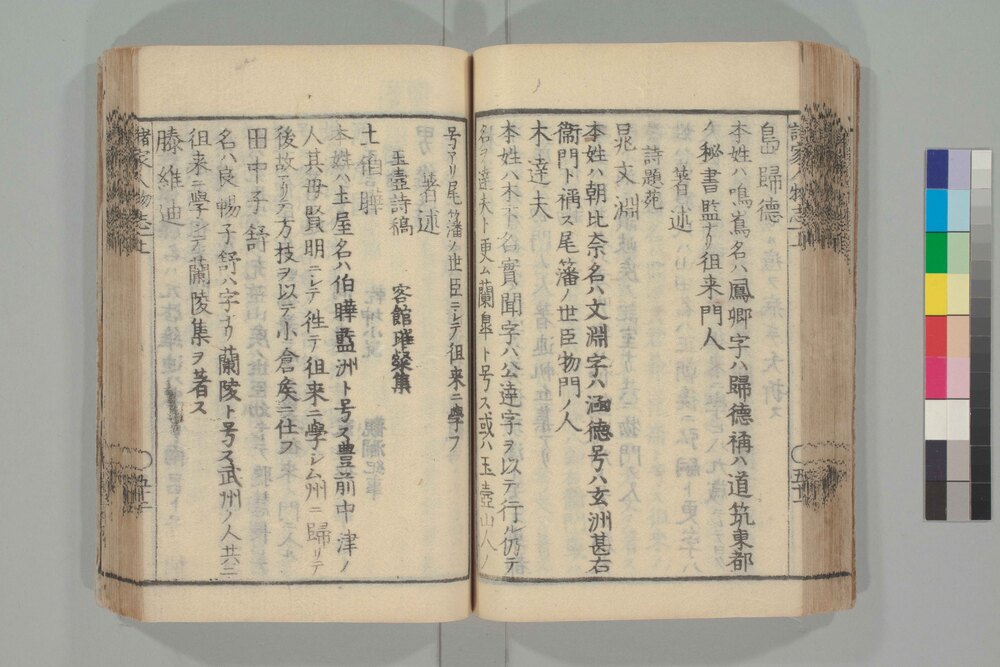 諸家人物志上
島歸德
本姓ハ鳴嶌名ハ鳳卿字ハ歸德稱ハ道筑東都
ノ秘書監ナリ徂来門人
著述
詩題苑
晁文淵
本姓ハ朝比奈名ハ文淵字ハ涵德号ハ玄洲甚右
衞門ト稱ス尾藩ノ世臣物門ノ人
木達夫
本姓ハ木下名實聞字ハ公達字ヲ以テ行ル仍テ
名ヲ達夫ト更ム蘭皐ト号ス或ハ玉壺山人ノ
五十一
号アリ尾藩ノ世臣ニシテ徂来ニ學フ
著述
玉壺詩稿 客館璀粲集
土伯曄
本姓ハ土屋名ハ伯曄藍洲ト号ス豊前中津ノ
人其母賢明ニシテ徃テ徂来ニ學シム州ニ歸リテ
後故アリテ方技ヲ以テ小倉矦ニ仕フ
田中子舒
名ハ良暢子舒ハ字ナリ蘭陵ト号ス武州ノ人共ニ
徂来ニ學シテ蘭陵集ヲ著ス
滕維迪
諸家人物志上